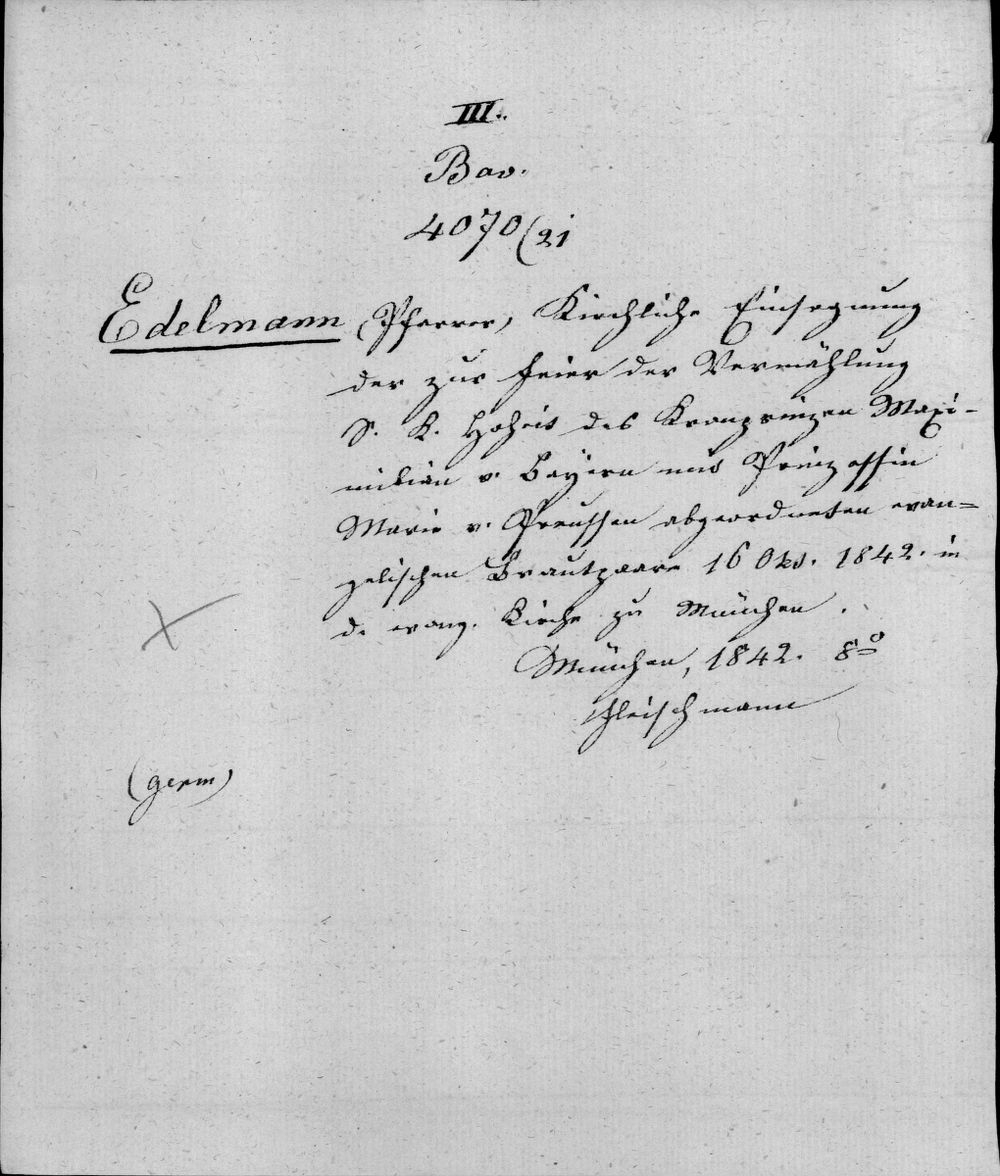 III.
Bav.
4070(21
Edelmann (Pfarrer) Kirchliche Einsegnung
der zur Feier der Vermählung
S. K. Hoheit des Kronprinzen Maxi-
milian v. Bayern mit Prinzessin
Marie v. Preussen abgeordneten evan-
gelischen Brautpaare 16 Okt. 1842. in
d. evang. Kirche zu München.
München, 1842. 8º
Fleischmann
(germ)